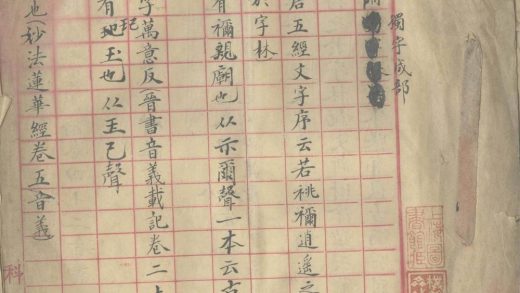 獨字成部
五經文字序云若祧禰逍遙之
於字林
有禰親廟也从示爾聲一本云古
字萬意反晉書音義載記卷二
玘
有玉也从玉己聲
也(妙法蓮華經卷五音義
上海圖書館藏
科